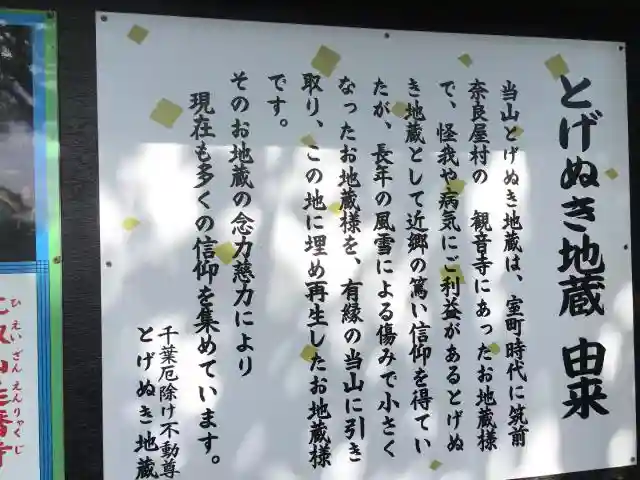 とげぬき地蔵 由来
当山とげぬき地蔵は、室町時代に筑前
奈良屋村の 観音寺にあったお地蔵様
で、怪我や病気にご利益があるとげぬ
き地蔵として近郷の篤い信仰を得てい
たが、長年の風雪による傷みで小さく
なったお地蔵様を、有縁の当山に引き
取り、この地に埋め再生したお地蔵様
です。
そのお地蔵の念力慈力により
現在も多くの信仰を集めています。
千葉厄除け不動尊
とげぬき地蔵
ひえいざんえんりゃくじ